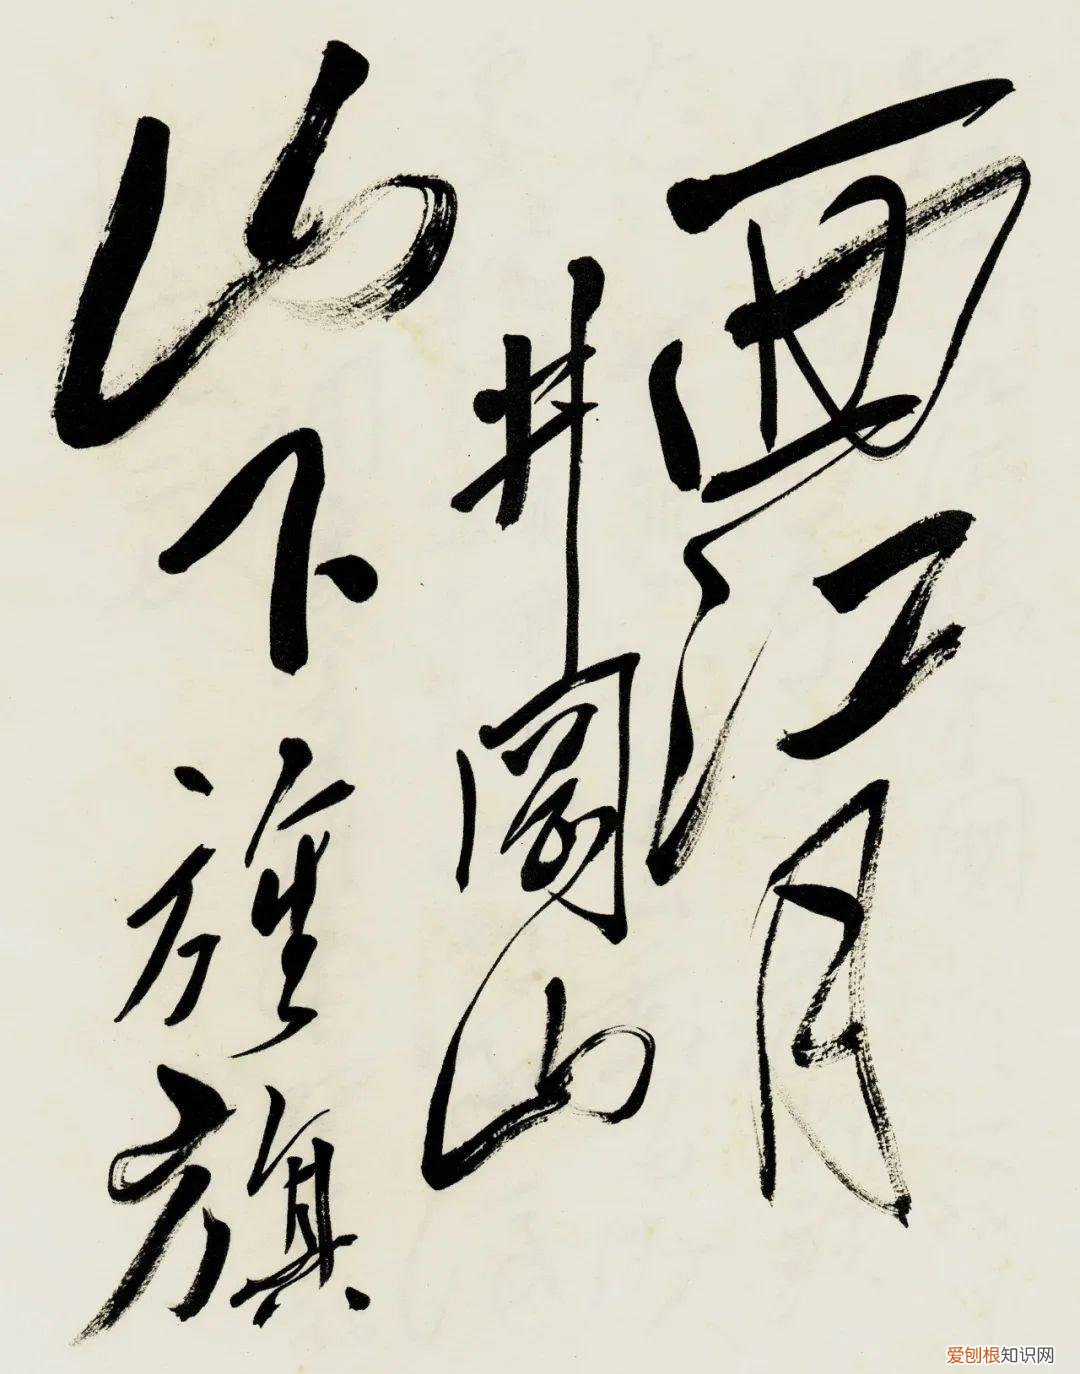 西江月
井冈山
山下旌旗
爱刨根知识网